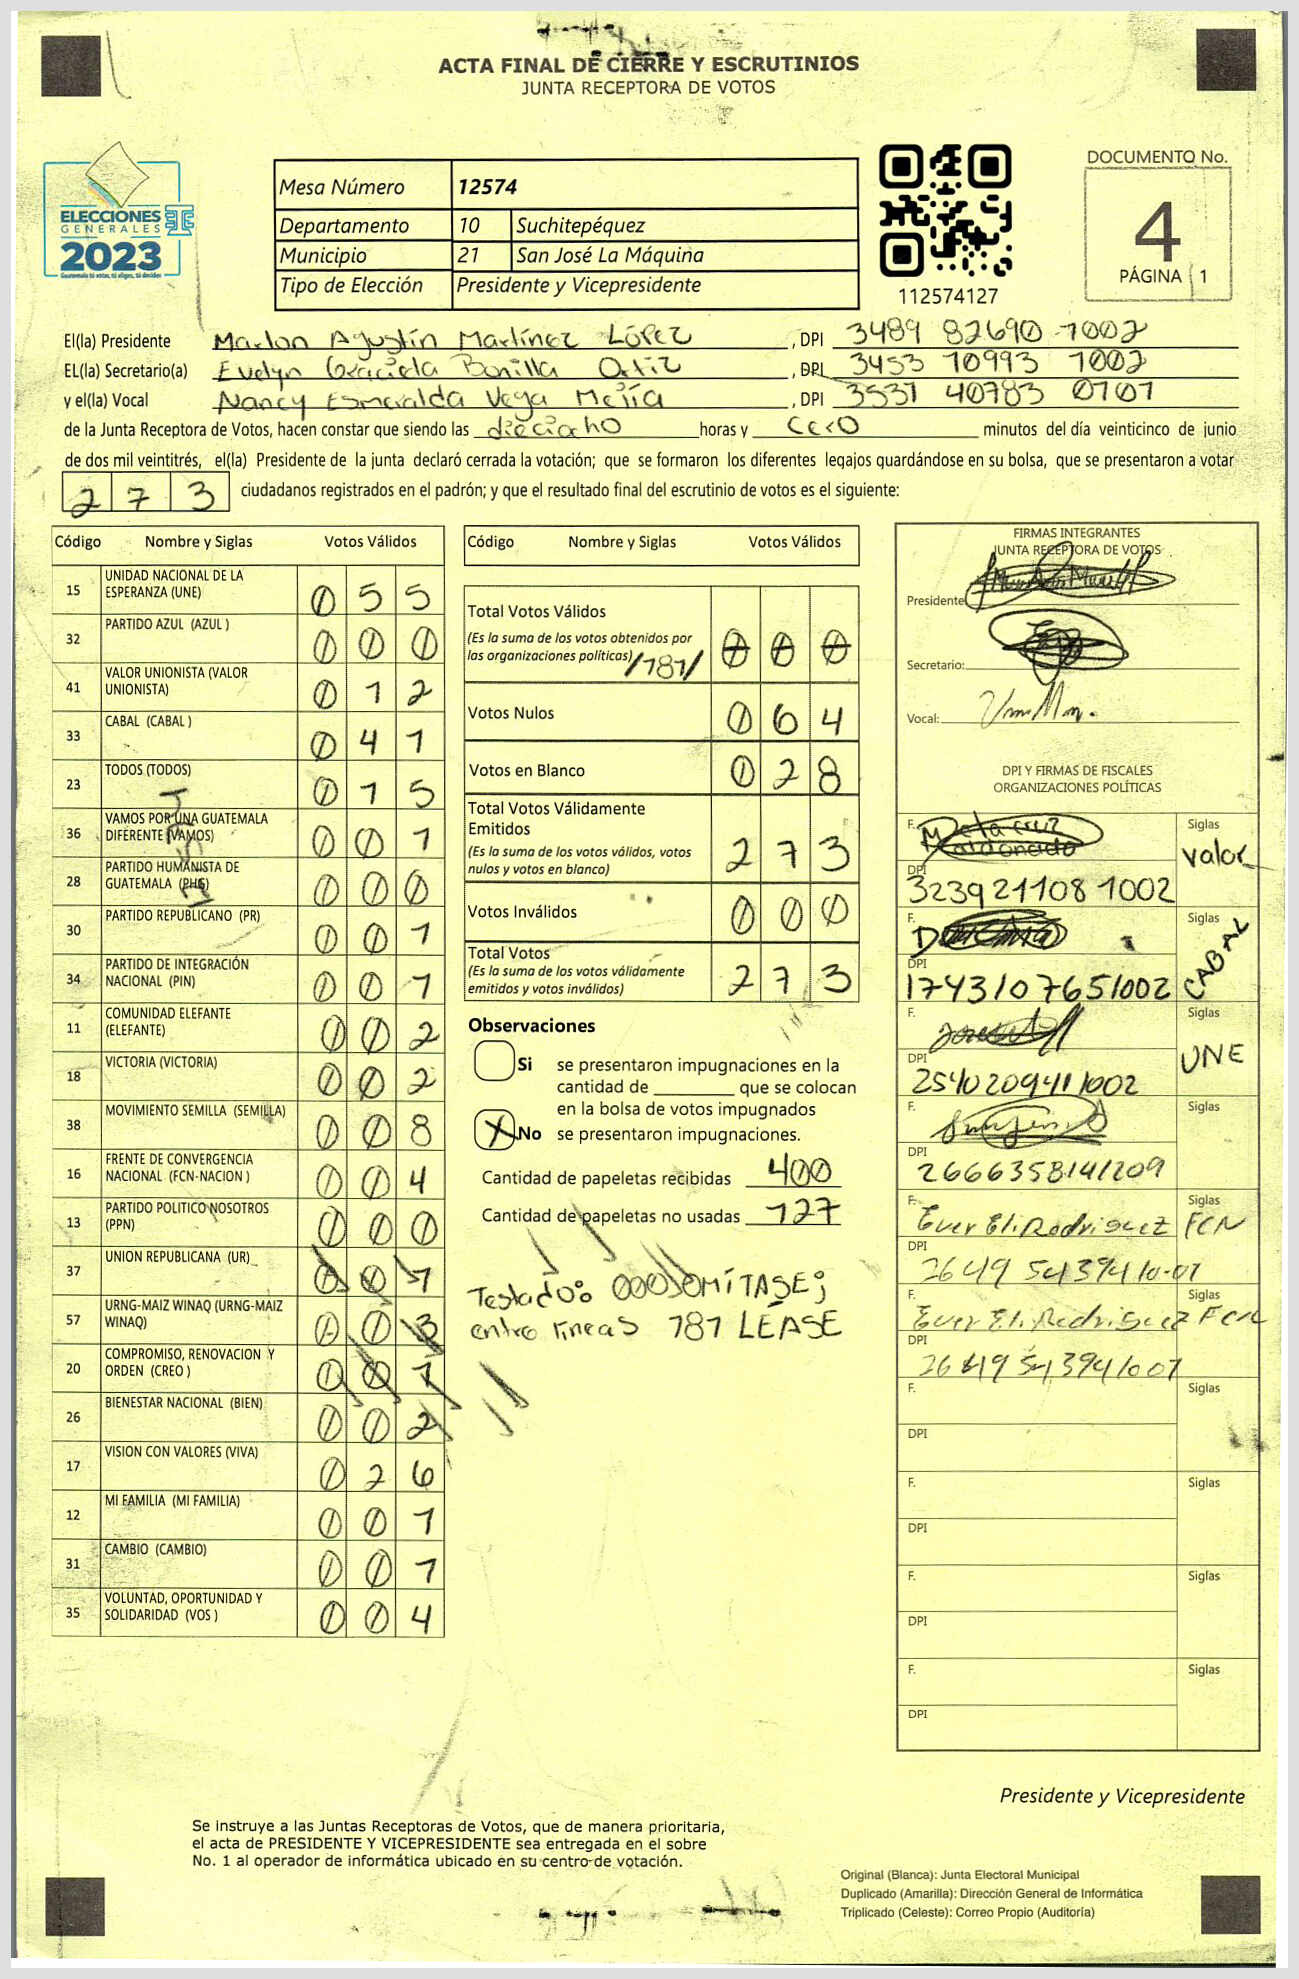 ACTA FINAL DE CIERRE Y ESCRUTINIOS
JUNTA RECEPTORA DE VOTOS
ELECCIONES
GENERALES
2023
Guatemala tú votas, tú eliges, tú decides
Mesa Número 12574
Departamento 10 Suchitepéquez
Municipio 21 San José La Máquina
Tipo de Elección Presidente y Vicepresidente
112574127
DOCUMENTO No.
4
PÁGINA 1
El(la) Presidente Marlon Agustín Martínez López , DPI 3489 82690 1002
EL(la) Secretario(a) Evelyn Graciela Bonilla Ortiz , DPI 3453 10993 1002
y el(la) Vocal Nancy Esmeralda Vega Mejía , DPI 3531 40783 0101
de la Junta Receptora de Votos, hacen constar que siendo las dieciocho horas y cero minutos del día veinticinco de junio
de dos mil veintitrés, el(la) Presidente de la junta declaró cerrada la votación; que se formaron los diferentes legajos guardándose en su bolsa, que se presentaron a votar
273 ciudadanos registrados en el padrón; y que el resultado final del escrutinio de votos es el siguiente:
Código Nombre y Siglas Votos Válidos
15 UNIDAD NACIONAL DE LA ESPERANZA (UNE) 055
32 PARTIDO AZUL (AZUL ) 000
41 VALOR UNIONISTA (VALOR UNIONISTA) 012
33 CABAL (CABAL ) 041
23 TODOS (TODOS) 015
36 VAMOS POR UNA GUATEMALA DIFERENTE (VAMOS) 001
28 PARTIDO HUMANISTA DE GUATEMALA (PHG) 000
30 PARTIDO REPUBLICANO (PR) 001
34 PARTIDO DE INTEGRACIÓN NACIONAL (PIN) 001
11 COMUNIDAD ELEFANTE (ELEFANTE) 002
18 VICTORIA (VICTORIA) 002
38 MOVIMIENTO SEMILLA (SEMILLA) 008
16 FRENTE DE CONVERGENCIA NACIONAL (FCN-NACION ) 004
13 PARTIDO POLITICO NOSOTROS (PPN) 000
37 UNION REPUBLICANA (UR) 001
57 URNG-MAIZ WINAQ (URNG-MAIZ WINAQ) 003
20 COMPROMISO, RENOVACION Y ORDEN (CREO ) 001
26 BIENESTAR NACIONAL (BIEN) 002
17 VISION CON VALORES (VIVA) 026
12 MI FAMILIA (MI FAMILIA) 001
31 CAMBIO (CAMBIO) 001
35 VOLUNTAD, OPORTUNIDAD Y SOLIDARIDAD (VOS ) 004
Código Nombre y Siglas Votos Válidos
Total Votos Válidos 000
(Es la suma de los votos obtenidos por
las organizaciones políticas) /181/
Votos Nulos 064
Votos en Blanco 028
Total Votos Válidamente
Emitidos 273
(Es la suma de los votos válidos, votos
nulos y votos en blanco)
Votos Inválidos 000
Total Votos 273
(Es la suma de los votos válidamente
emitidos y votos inválidos)
Observaciones
Si se presentaron impugnaciones en la
cantidad de ________ que se colocan
en la bolsa de votos impugnados
X No se presentaron impugnaciones.
Cantidad de papeletas recibidas 400
Cantidad de papeletas no usadas 127
Testado: 000 OMÍTASE;
entre líneas 181 LÉASE
FIRMAS INTEGRANTES
JUNTA RECEPTORA DE VOTOS
Presidente
Secretario:
Vocal:
DPI Y FIRMAS DE FISCALES
ORGANIZACIONES POLÍTICAS
F. Siglas
Maldonado valor
DPI
3239 21108 1002
F. Siglas
CABAL
DPI
1743107651002
F. Siglas
UNE
DPI
2540209411002
F. Siglas
DPI
2666358141209
F. Siglas
Ever Eli Rodriguez FCN
DPI
F. Siglas
Ever Eli Rodriguez FCN
DPI
F. Siglas
DPI
F. Siglas
DPI
F. Siglas
DPI
F. Siglas
DPI
Presidente y Vicepresidente
Se instruye a las Juntas Receptoras de Votos, que de manera prioritaria,
el acta de PRESIDENTE Y VICEPRESIDENTE sea entregada en el sobre
No. 1 al operador de informática ubicado en su centro de votación.
Original (Blanca): Junta Electoral Municipal
Duplicado (Amarilla): Dirección General de Informática
Triplicado (Celeste): Correo Propio (Auditoría)